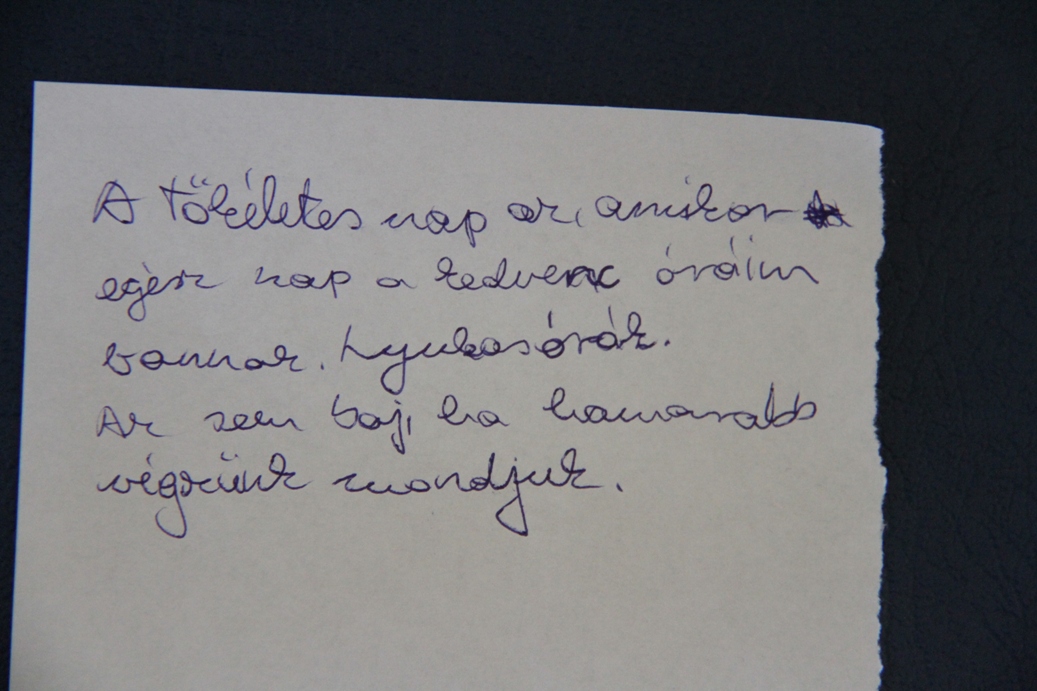 A tökéletes nap az, amikor
egész nap a kedvenc óráim
vannak. Lyukasórák.
Az sem baj, ha hamarabb
végzünk mondjuk.